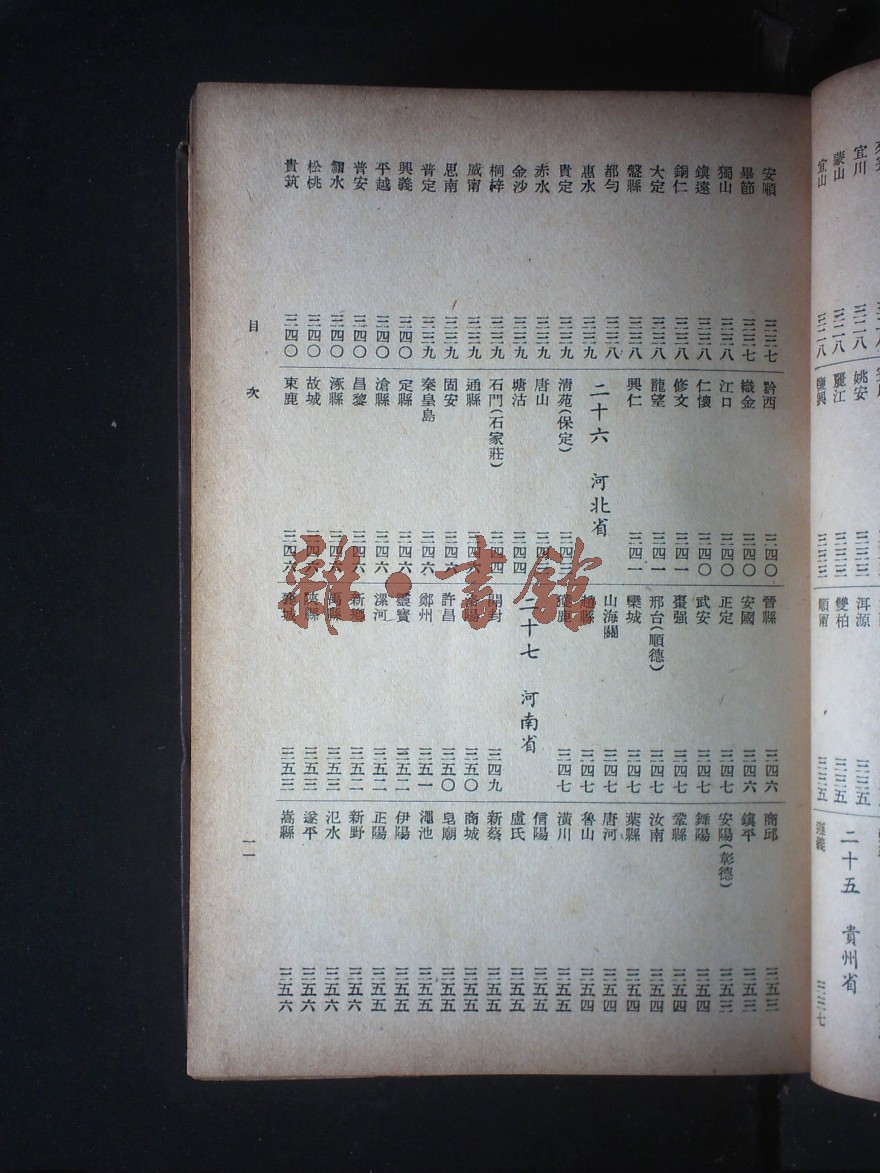 宜川 三二八
蒙山 三二八
宜山 三二八
姚安 三三三
麗江 三三三
鹽興 三三三
洱源 三三五
雙柏 三三五
順甯 三三五
二十五 貴州省
遵義 三三七
安順 三三七
畢節 三三七
獨山 三三八
鎮遠 三三八
銅仁 三三八
大定 三三八
盤縣 三三八
都勻 三三八
惠水 三三九
貴定 三三九
赤水 三三九
金沙 三三九
桐梓 三三九
威甯 三三九
思南 三三九
普定 三三九
興義 三四〇
平越 三四〇
普安 三四〇
鰼水 三四〇
松桃 三四〇
貴筑 三四〇
黔西 三四〇
織金 三四〇
江口 三四〇
仁懷 三四〇
修文 三四一
龍望 三四一
興仁 三四一
二十六 河北省
清苑(保定) 三四三
唐山 三四三
塘沽 三四四
石門(石家莊) 三四四
通縣 三四六
固安 三四六
秦皇島 三四六
定縣 三四六
滄縣 三四六
昌黎 三四六
涿縣 三四六
故城 三四六
束鹿 三四六
晉縣 三四六
安國 三四六
正定 三四七
武安 三四七
棗强 三四七
邢台(順德) 三四七
欒城 三四七
山海關 三四七
趙縣 三四七
獲鹿 三四七
二十七 河南省
開封 三四九
洛陽 三五〇
許昌 三五〇
鄭州 三五一
靈寶 三五二
漯河 三五二
新鄉 三五二
禹縣 三五三
陝縣 三五三
襄城 三五三
商邱 三五三
鎮平 三五三
安陽(彰德) 三五三
舞陽 三五四
鞏縣 三五四
汝南 三五四
葉縣 三五四
唐河 三五四
魯山 三五四
潢川 三五五
信陽 三五五
盧氏 三五五
新蔡 三五五
商城 三五五
皂廟 三五五
澠池 三五五
伊陽 三五五
正陽 三五五
新野 三五六
氾水 三五六
遂平 三五六
嵩縣 三五六
目次 一一
雜·書館